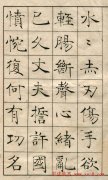 水〻赤刃傷手欲
輕腸斷聲心緒亂
已久丈夫誓許國
憤惋復何有功